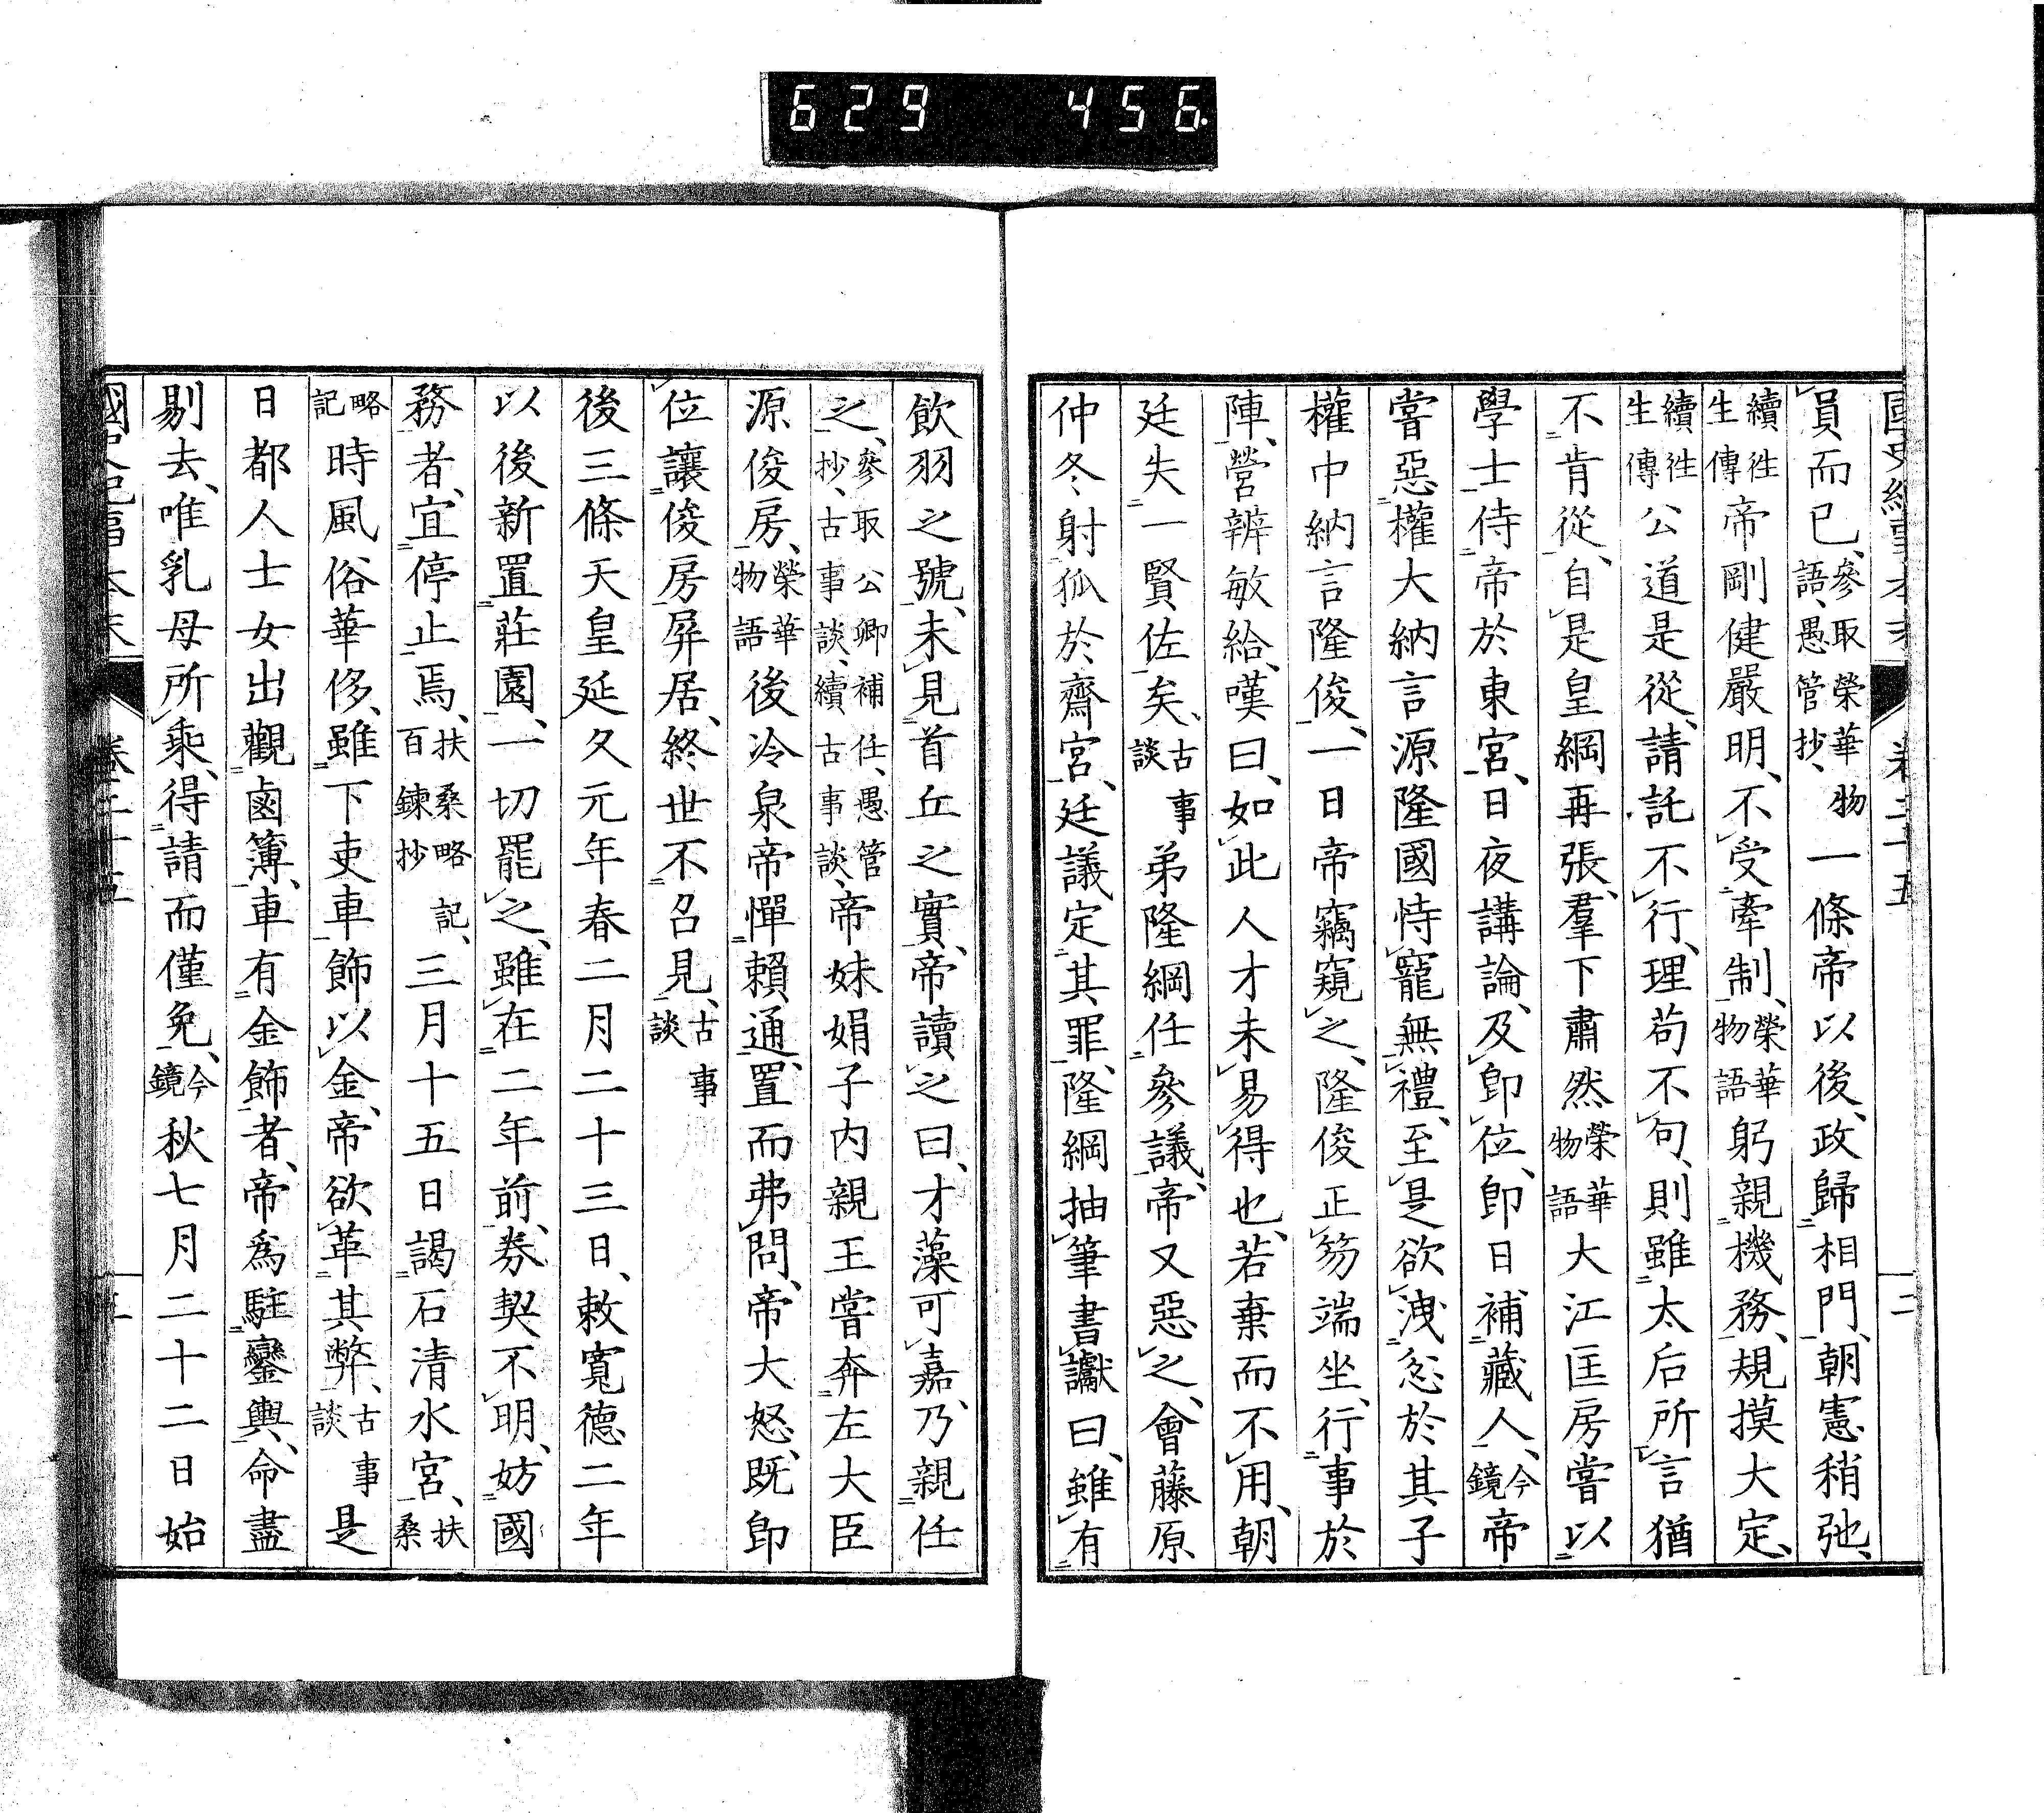 629 456
國史紀事本末 卷二十五 二
員而已、參取榮華物語、愚管抄、一條帝以後、政歸相門、朝憲稍弛、
續往生傳帝剛健嚴明、不受牽制、榮華物語躬親機務、規摸大定、
續往生傳公道是從、請託不行、理苟不句、則雖太后所言猶
不肯從、自是皇綱再張、羣下肅然榮華物語大江匡房嘗以
學士侍帝於東宮、日夜講論、及卽位、卽日補藏人、今鏡帝
嘗惡權大納言源隆國恃寵無禮、至是欲洩忿於其子
權中納言隆俊、一日帝竊窺之、隆俊正笏端坐、行事於
陣、營辨敏給、嘆曰、如此人才未易得也、若棄而不用、朝
廷失一賢佐矣、古事談弟隆綱任參議、帝又惡之、會藤原
仲冬射狐於齋宮、廷議定其罪、隆綱抽筆書讞曰、雖有
飮羽之號、未見首丘之實、帝讀之曰、才藻可嘉、乃親任
之、參取公卿補任、愚管抄、古事談、續古事談、帝妹娟子內親王嘗奔左大臣
源俊房、榮華物語後冷泉帝憚賴通、置而弗問、帝大怒、既卽
位讓俊房屛居、終世不召見、古事談
後三條天皇延久元年春二月二十三日、敕寬德二年
以後新置莊園、一切罷之、雖在二年前、券契不明、妨國
務者、宜停止焉、扶桑略記、百鍊抄三月十五日謁石淸水宮、扶桑
略記時風俗華侈、雖下吏車飾以金、帝欲革其弊、古事談是
日都人士女出觀鹵簿、車有金飾者、帝爲駐鑾輿、命盡
剔去、唯乳母所乘、得請而僅免、今鏡秋七月二十二日始
國史紀事本末 卷二十五